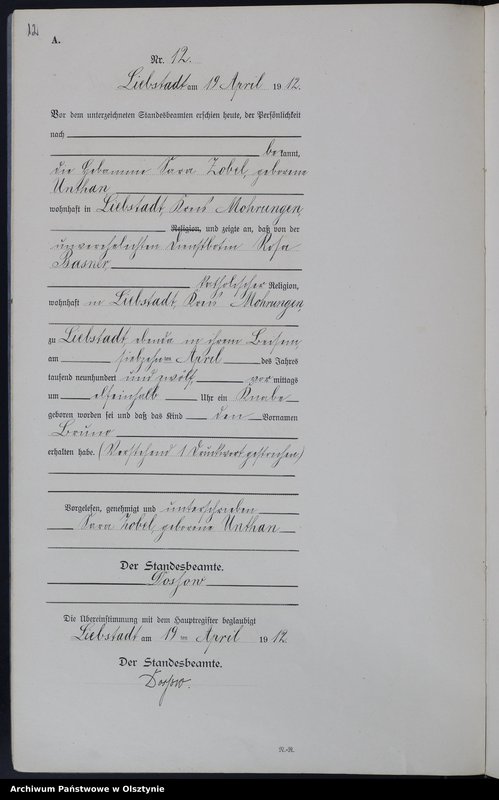 12
A.
Nr. 12.
Liebstadt am 19 April 1912.
Vor dem unterzeichneten Standesbeamten erschien heute, der Persönlichkeit
nach
bekannt,
die Hebamme Sara Zobel, geborene
Unthan
wohnhaft in Liebstadt, Kreis Mohrungen,
Religion, und zeigte an, daß von der
unverehelichten Dienstbotin Rosa
Basner,
katholischer Religion,
wohnhaft in Liebstadt, Kreis Mohrungen,
zu Liebstadt, ebenda in ihrem Beisein,
am siebzehnten April des Jahres
tausend neunhundert und zwölf, vormittags
um elfeinhalb Uhr ein Knabe
geboren worden sei und daß das Kind den Vornamen
Bruno
erhalten habe. (Vorstehend 1 Druckwort gestrichen)
Vorgelesen, genehmigt und unterschrieben
Sara Zobel, geborene Unthan
Der Standesbeamte.
Die Übereinstimmung mit dem Hauptregister beglaubigt
Liebstadt am 19ten April 1912.
Der Standesbeamte.
N.-R.
Archiwum Państwowe w Olsztynie